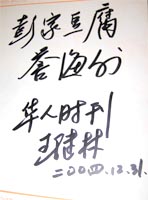 彭家豆腐
香海外
华人时刊
王建林
二〇〇四.12.31.